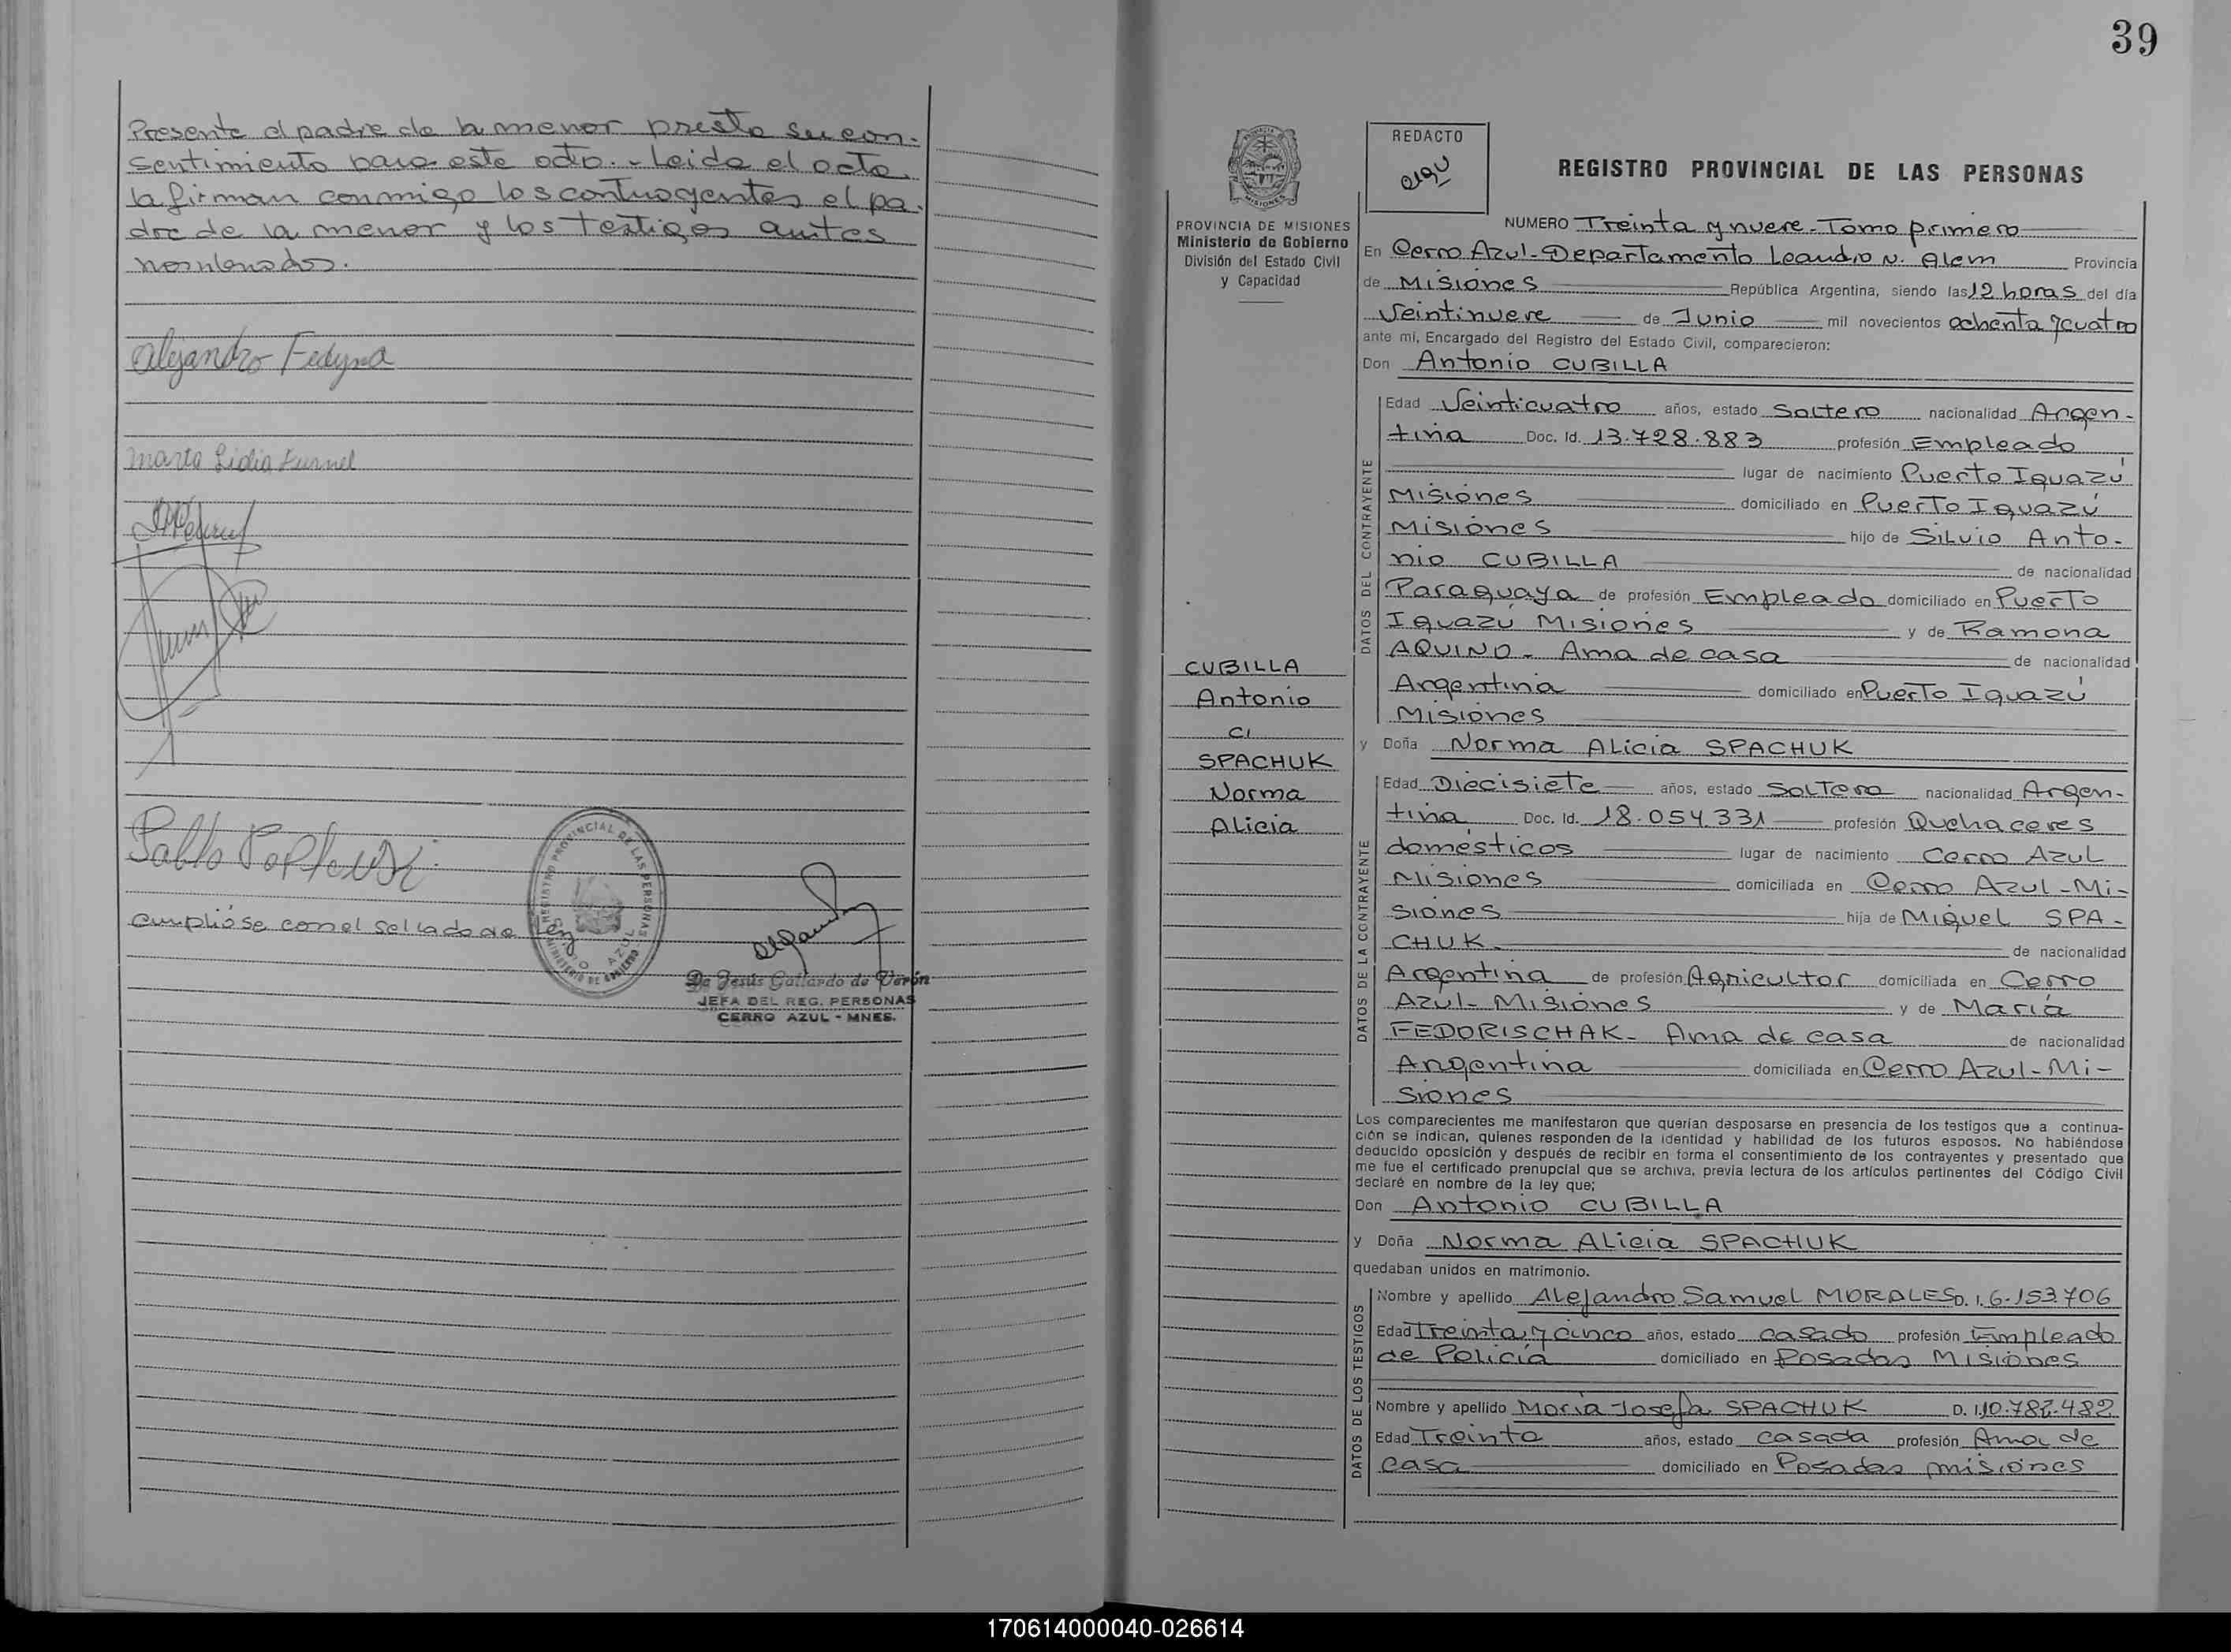 Presente el padre de la menor presta su con-
sentimiento para este acto. - Leida el acta
la firman conmigo los contrayentes el pa-
dre de la menor y los testigos antes
nombrados.
Alejandro Fedyna
Marta Lidia
Pablo
Cumplióse con el sellado de Ley
REGISTRO PROVINCIAL DE LAS PERSONAS
CERRO AZUL
MINISTERIO DE GOBIERNO
De Jesús Gallardo de Verón
JEFA DEL REG. PERSONAS
CERRO AZUL - MNES.
39
PROVINCIA DE MISIONES
Ministerio de Gobierno
División del Estado Civil
y Capacidad
CUBILLA
Antonio
c/
SPACHUK
Norma
Alicia
REDACTO
REGISTRO PROVINCIAL DE LAS PERSONAS
NUMERO Treinta y nueve - Tomo primero
En Cerro Azul - Departamento Leandro N. Alem Provincia
de Misiones República Argentina, siendo las 12 horas del día
Veintinueve de Junio mil novecientos ochenta y cuatro
ante mi, Encargado del Registro del Estado Civil, comparecieron:
Don Antonio CUBILLA
DATOS DEL CONTRAYENTE
Edad Veinticuatro años, estado Soltero nacionalidad Argen-
tina Doc. Id. 13.728.883 profesión Empleado
lugar de nacimiento Puerto Iguazú
Misiones domiciliado en Puerto Iguazú
Misiones hijo de Silvio Anto-
nio CUBILLA de nacionalidad
Paraguaya de profesión Empleado domiciliado en Puerto
Iguazú Misiones y de Ramona
AQUINO - Ama de casa de nacionalidad
Argentina domiciliado en Puerto Iguazú
Misiones
y Doña Norma Alicia SPACHUK
DATOS DE LA CONTRAYENTE
Edad Diecisiete años, estado Soltera nacionalidad Argen-
tina Doc. Id. 18.054.331 profesión Quehaceres
domésticos lugar de nacimiento Cerro Azul
Misiones domiciliada en Cerro Azul - Mi-
siones hija de Miguel SPA-
CHUK - de nacionalidad
Argentina de profesión Agricultor domiciliada en Cerro
Azul - Misiones y de María
FEDORISCHAK - Ama de casa de nacionalidad
Argentina domiciliada en Cerro Azul - Mi-
siones
Los comparecientes me manifestaron que querían desposarse en presencia de los testigos que a continua-
ción se indican, quienes responden de la identidad y habilidad de los futuros esposos. No habiéndose
deducido oposición y después de recibir en forma el consentimiento de los contrayentes y presentado que
me fue el certificado prenupcial que se archiva, previa lectura de los artículos pertinentes del Código Civil
declaré en nombre de la ley que;
Don Antonio CUBILLA
y Doña Norma Alicia SPACHUK
quedaban unidos en matrimonio.
DATOS DE LOS TESTIGOS
Nombre y apellido Alejandro Samuel MORALES D. I. 6.153.706
Edad Treinta y cinco años, estado casado profesión Empleado
de Policía domiciliado en Posadas Misiones
Nombre y apellido María Josefa SPACHUK D. I. 10.782.482
Edad Treinta años, estado casada profesión Ama de
casa domiciliado en Posadas misiones
170614000040-026614